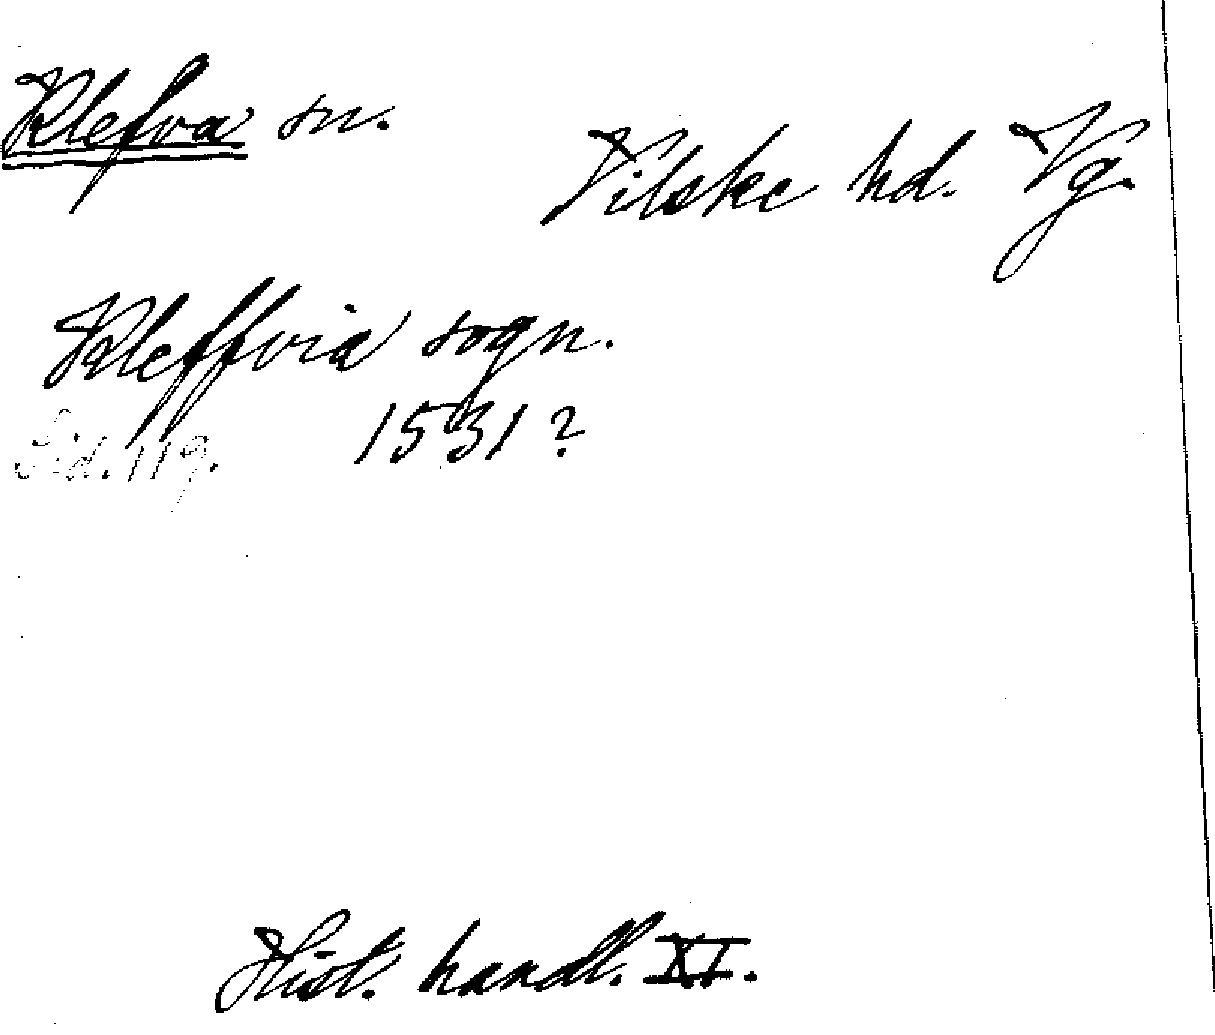 Klefva sn.
Vilske hd. Vg.
Kleffvia sogn.
Sid. 119. 1531?
Hist. handl. XI.